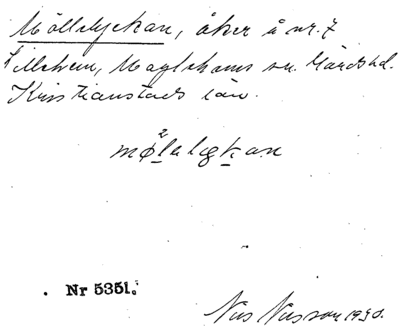 Möllelyckan, åker å nr. 7
Lillehem, Maglehems sn. Gärds hd.
Kristianstads län.
møleløkan
Nr 5351.
Nils Nilsson 1930.